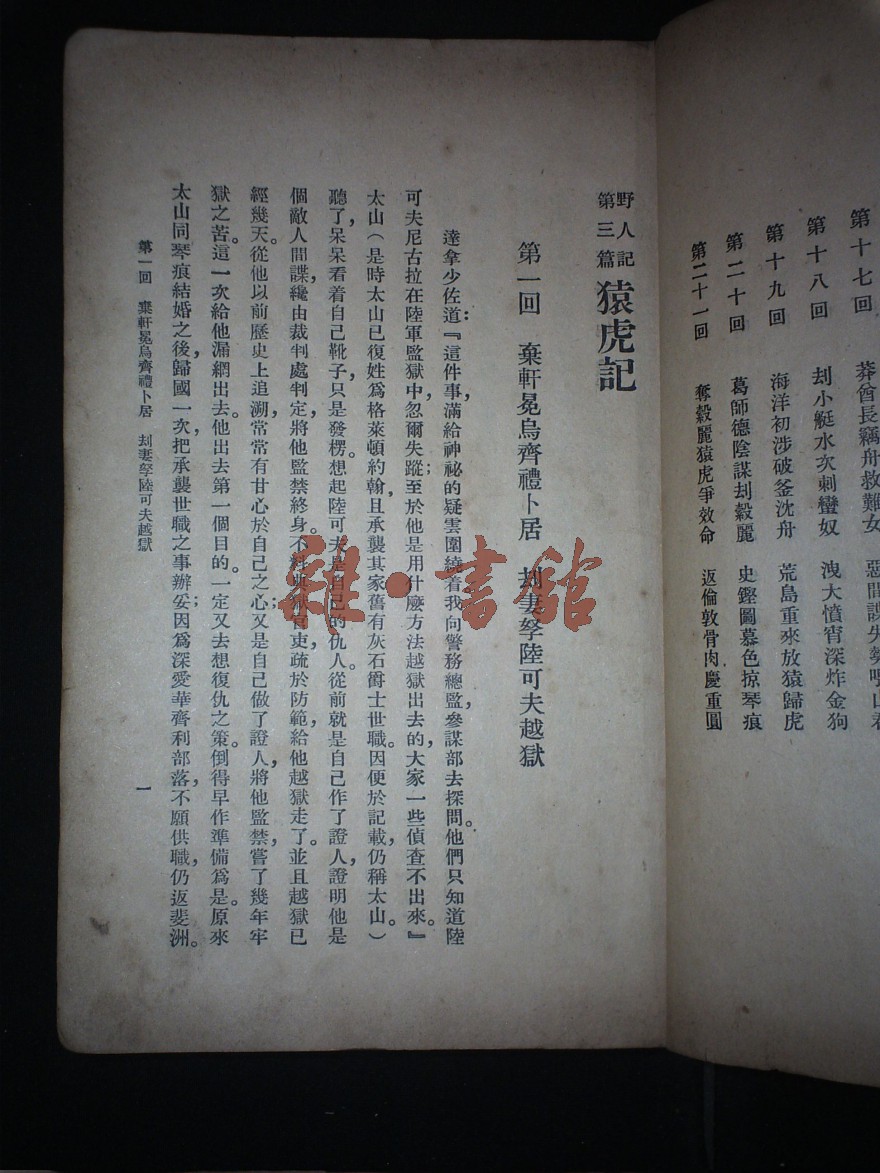 第十七回 莽酋長竊舟救難女 惡間諜失勢
第十八回 刦小艇水次刺蠻奴 洩大憤宵深炸金狗
第十九回 海洋初涉破釜沈舟 荒島重來放猿歸虎
第二十回 葛師德陰謀刦穀麗 史鏗圖慕色掠琴痕
第二十一回 奪穀麗猿虎爭效命 返倫敦骨肉慶重圓
野人記
第三篇
猿虎記
第一回 棄軒冕烏齊禮卜居 刦妻孥陸可夫越獄
達拿少佐道:『這件事,滿給神祕的疑雲圍繞着我向警務總監,參謀部去探問。他們只知道陸
可夫尼古拉在陸軍監獄中,忽爾失蹤;至於他是用什麼方法越獄出去的,大家一些偵查不出來。』
太山(是時太山已復姓爲格萊頓約翰,且承襲其家舊有灰石爵士世職。因便於記載,仍稱太山。)
聽了,呆呆看着自己靴子,只是發楞。想起陸可夫是自己的仇人,從前就是自己作了證人,證明他是
個敵人間諜,纔由裁判處判定,將他監禁終身。不料典獄官吏疏於防範,給他越獄走了。並且越獄已
經幾天。從他以前歷史上追溯,常常有甘心於自己之心;又是自己做了證人,將他監禁,嘗了幾年牢
獄之苦。這一次給他漏網出去。他出去第一個目的。一定又去想復仇之策。倒得早作準備爲是。原來
太山同琴痕結婚之後,歸國一次,把承襲世職之事辦妥;因爲深愛華齊利部落,不願供職,仍返斐洲。
第一回 棄軒冕烏齊禮卜居 刦妻孥陸可夫越獄
一
雜·書館